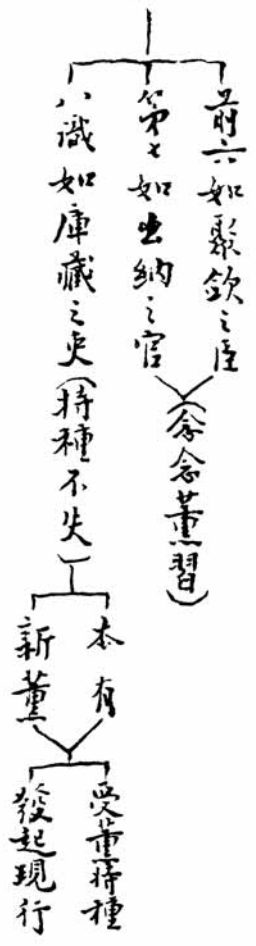 前六如聚歛之臣
第七如出納之官
(念念薰習)
八識如庫藏之吏(持種不失)
本有
新薰
受薰持種
發起現行